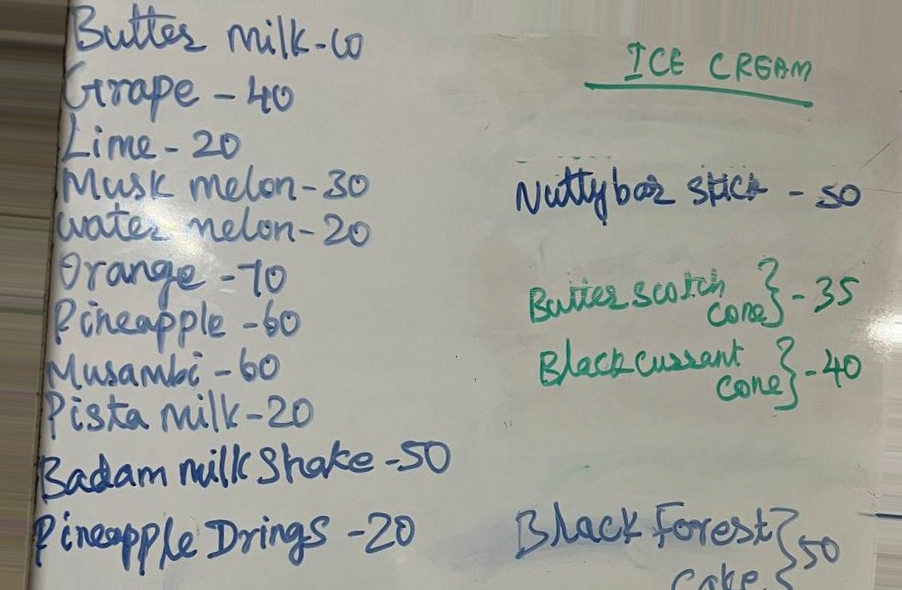 Butter milk-10
Grape - 40
Lime - 20
Musk melon - 30
water melon - 20
Orange - 70
Pineapple - 60
Musambi - 60
Pista milk - 20
Badam milk Shake - 50
Pineapple Drings - 20
ICE CREAM
Nuttybar stick - 50
Butter scotch
cone } - 35
Black cussant
cone } - 40
Black Forest
cake } 50